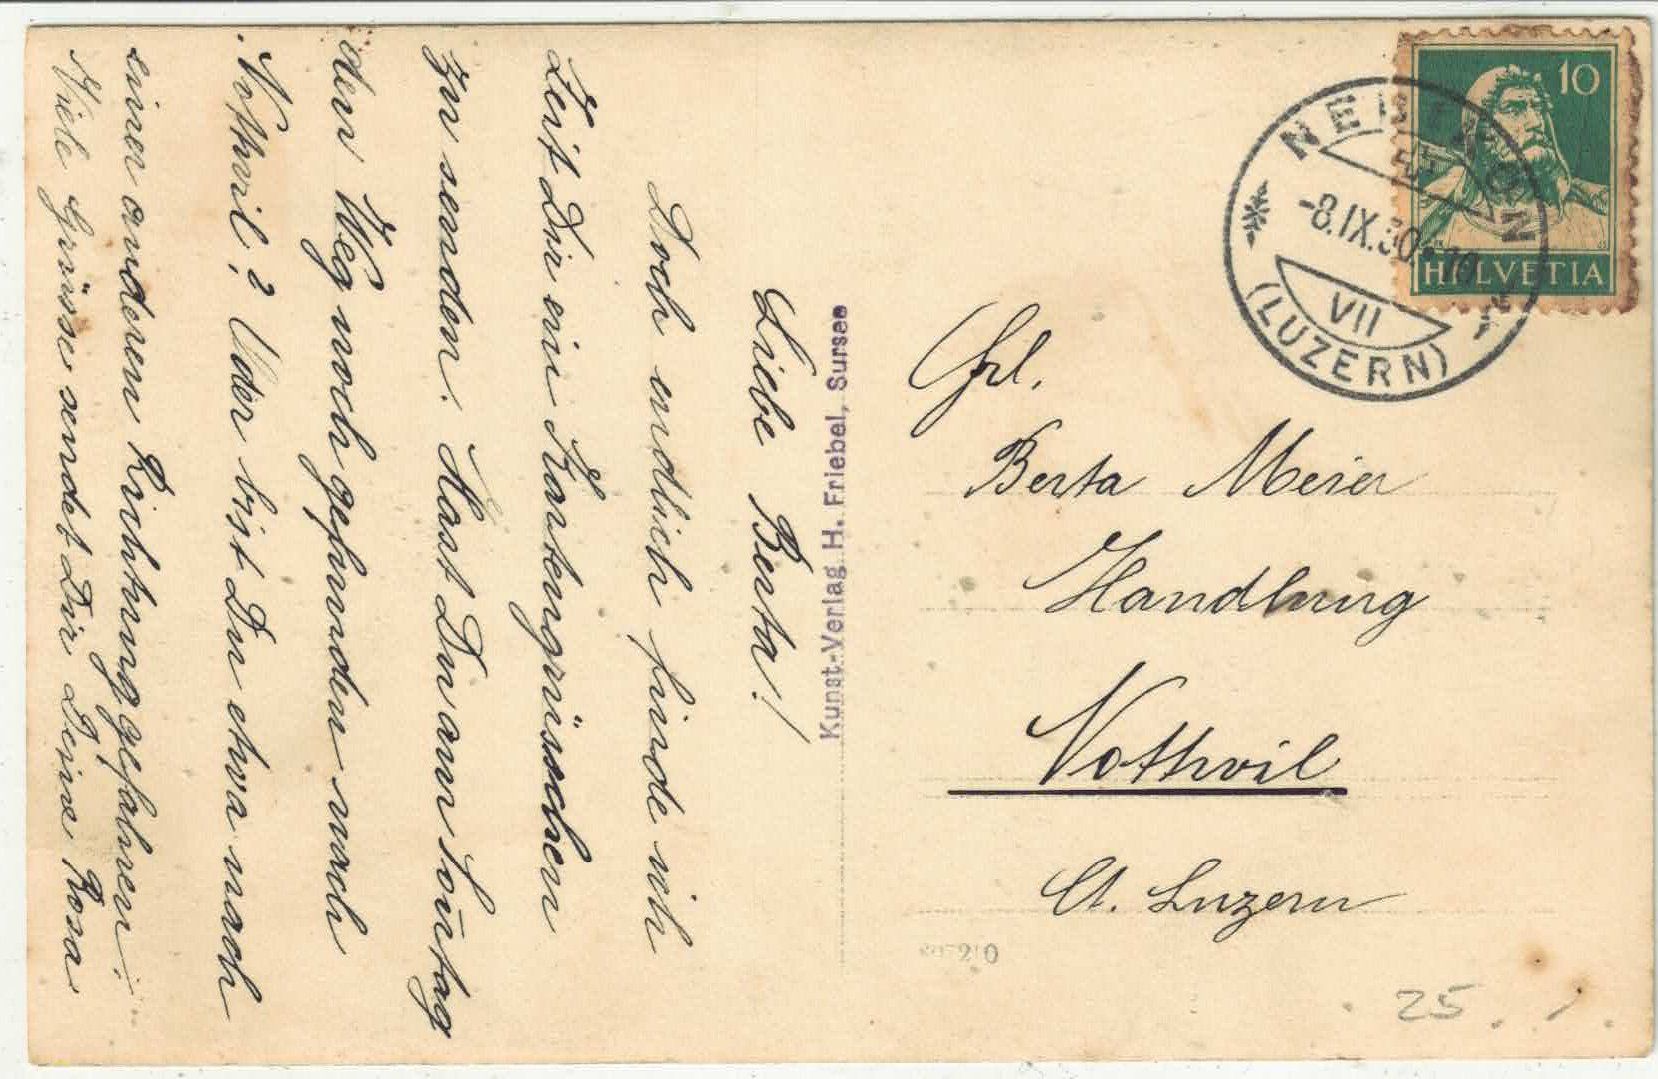 Liebe Berta!
Doch endlich finde ich
Zeit Dir ein Kartengrüsschen
zu senden. Hast Du am Soñtag
den Weg noch gefunden nach
Nottwil? Oder bist Du etwa nach
einer anderen Richtung gefahren.
Viele Grüsse sendet Dir Deine Rosa
Kunst-Verlag H. Friebel, Sursee
10
HELVETIA
NEBIKON
-8.IX.30
10
VII
(LUZERN)
Frl.
Berta Meier
Handlung
Nottwil
Ct. Luzern
25.